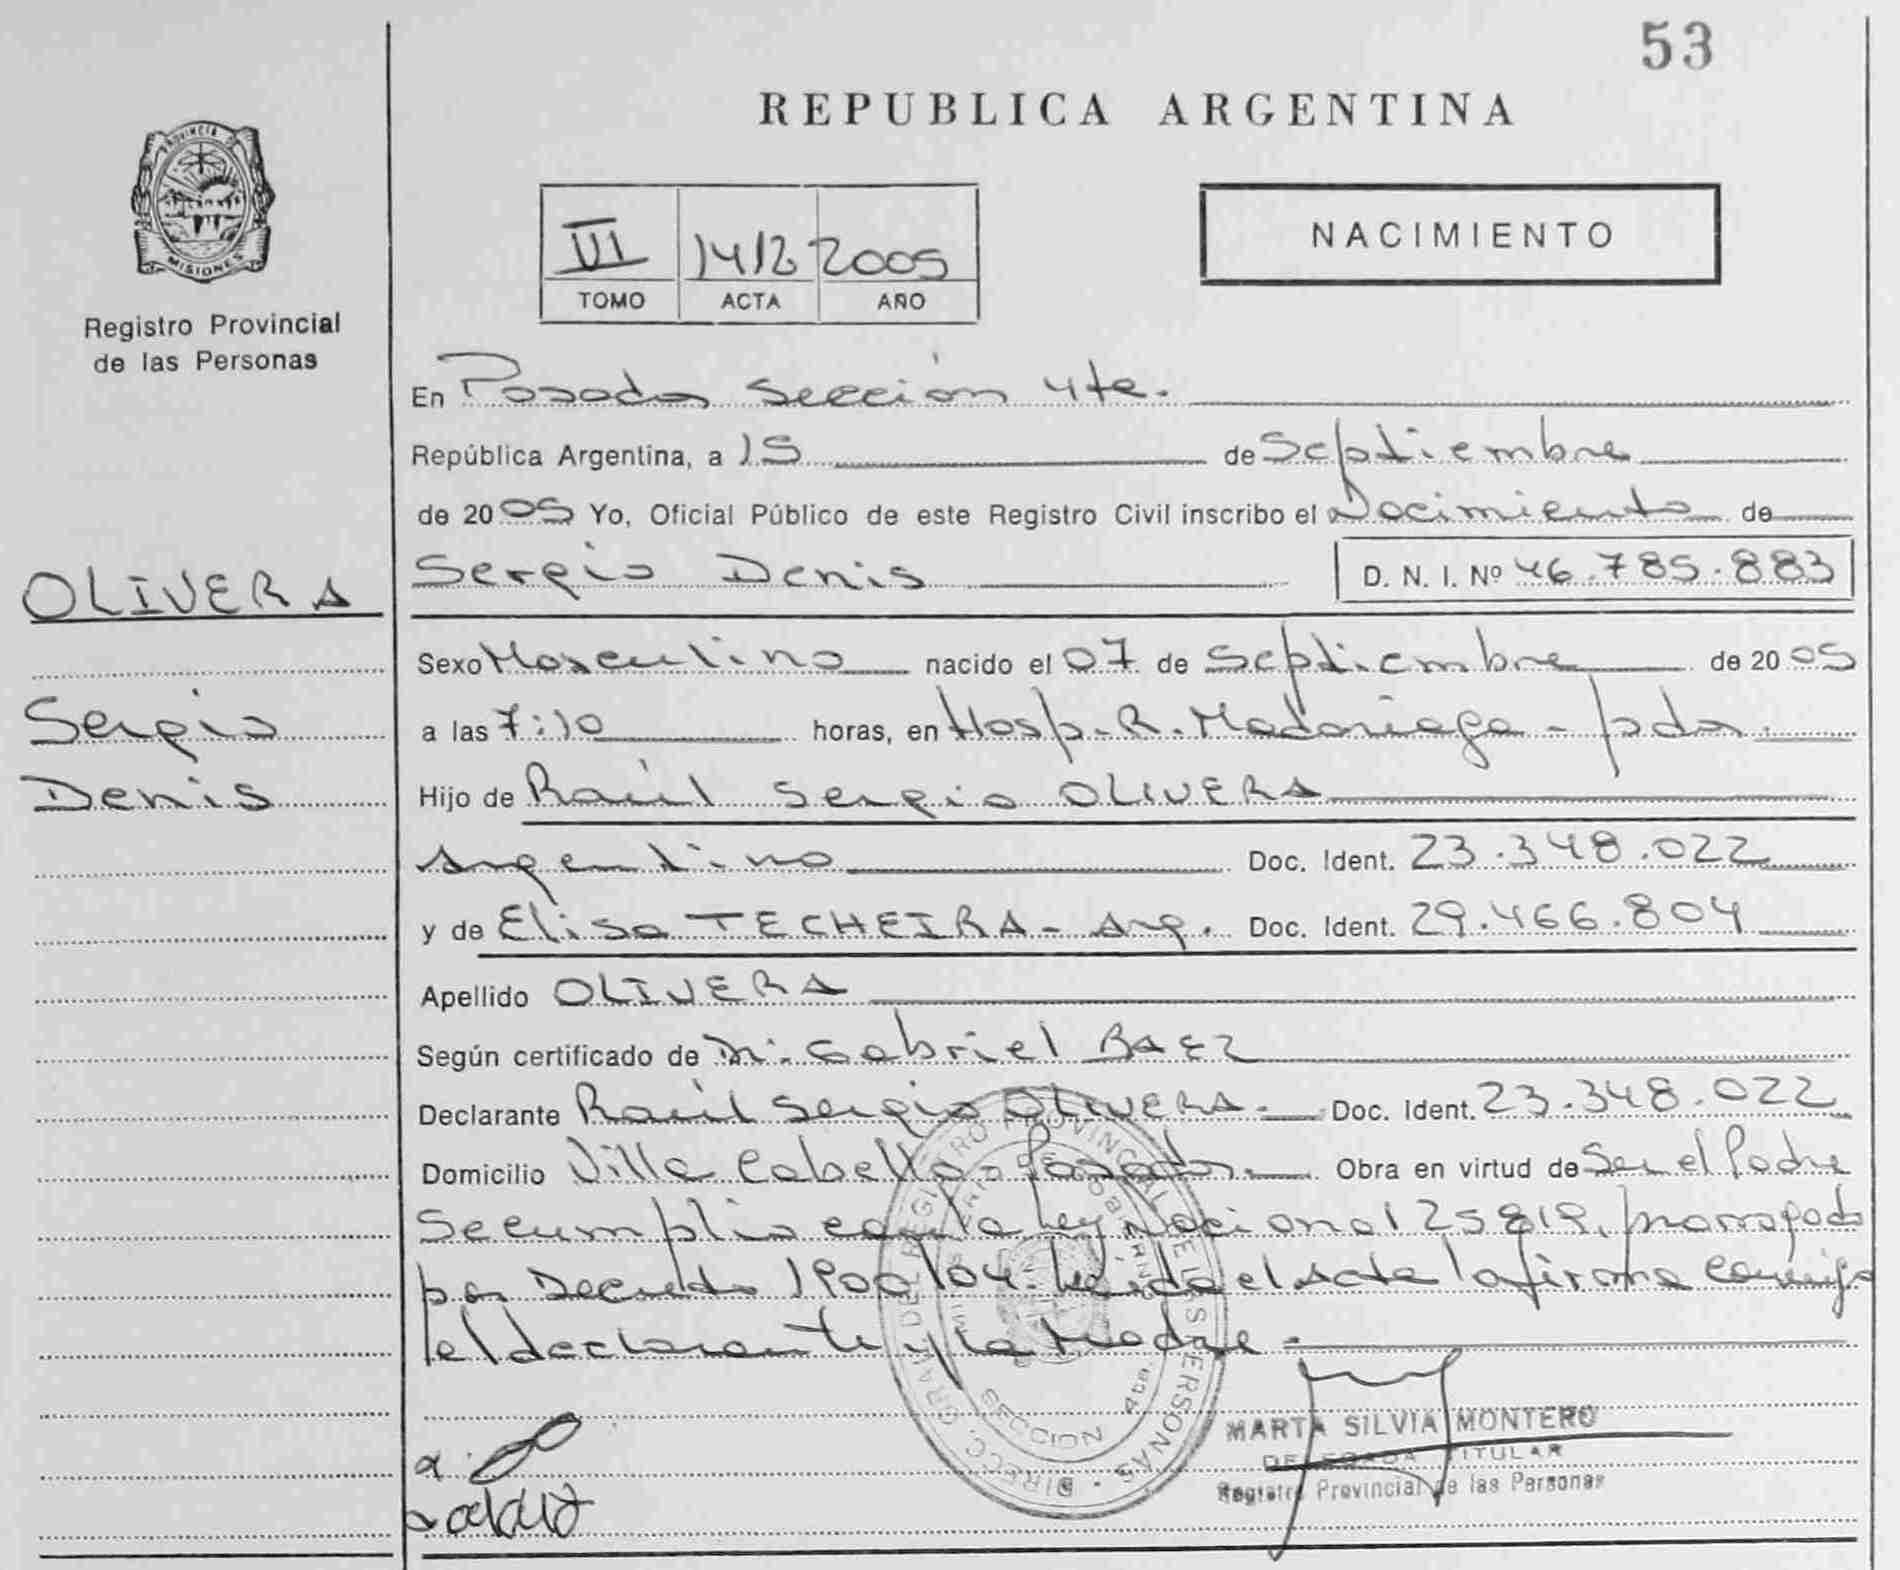 53
REPUBLICA ARGENTINA
PROVINCIA DE
MISIONES
Registro Provincial
de las Personas
VI 1412 2005
TOMO ACTA AÑO
NACIMIENTO
En Posadas Sección 4ta.
República Argentina, a 15 de Septiembre
de 2005 Yo, Oficial Público de este Registro Civil inscribo el Nacimiento de
Sergio Denis D. N. I. Nº 46.785.883
OLIVERA
Sergio
Denis
Sexo Masculino nacido el 07 de Septiembre de 2005
a las 7:10 horas, en Hosp. R. Madariaga - pdas.
Hijo de Raúl Sergio OLIVERA
Argentino Doc. Ident. 23.348.022
y de Elisa TECHEIRA - Arg. Doc. Ident. 29.466.804
Apellido OLIVERA
Según certificado de Dr. Gabriel BAEZ
Declarante Raúl Sergio OLIVERA - Doc. Ident. 23.348.022
Domicilio Villa Cabello - Posadas. Obra en virtud de Ser el Padre
Se cumplio con la Ley Nacional 25819, prorrogada
por Decreto 1900/04. Leida el Acta la firma conmigo
el declarante y la Madre -
DIRECC. GRAL. DEL REGISTRO PROVINCIAL DE LAS PERSONAS
SECCION 4ta.
MARTA SILVIA MONTERO
DELEGADA TITULAR
Registro Provincial de las Personas